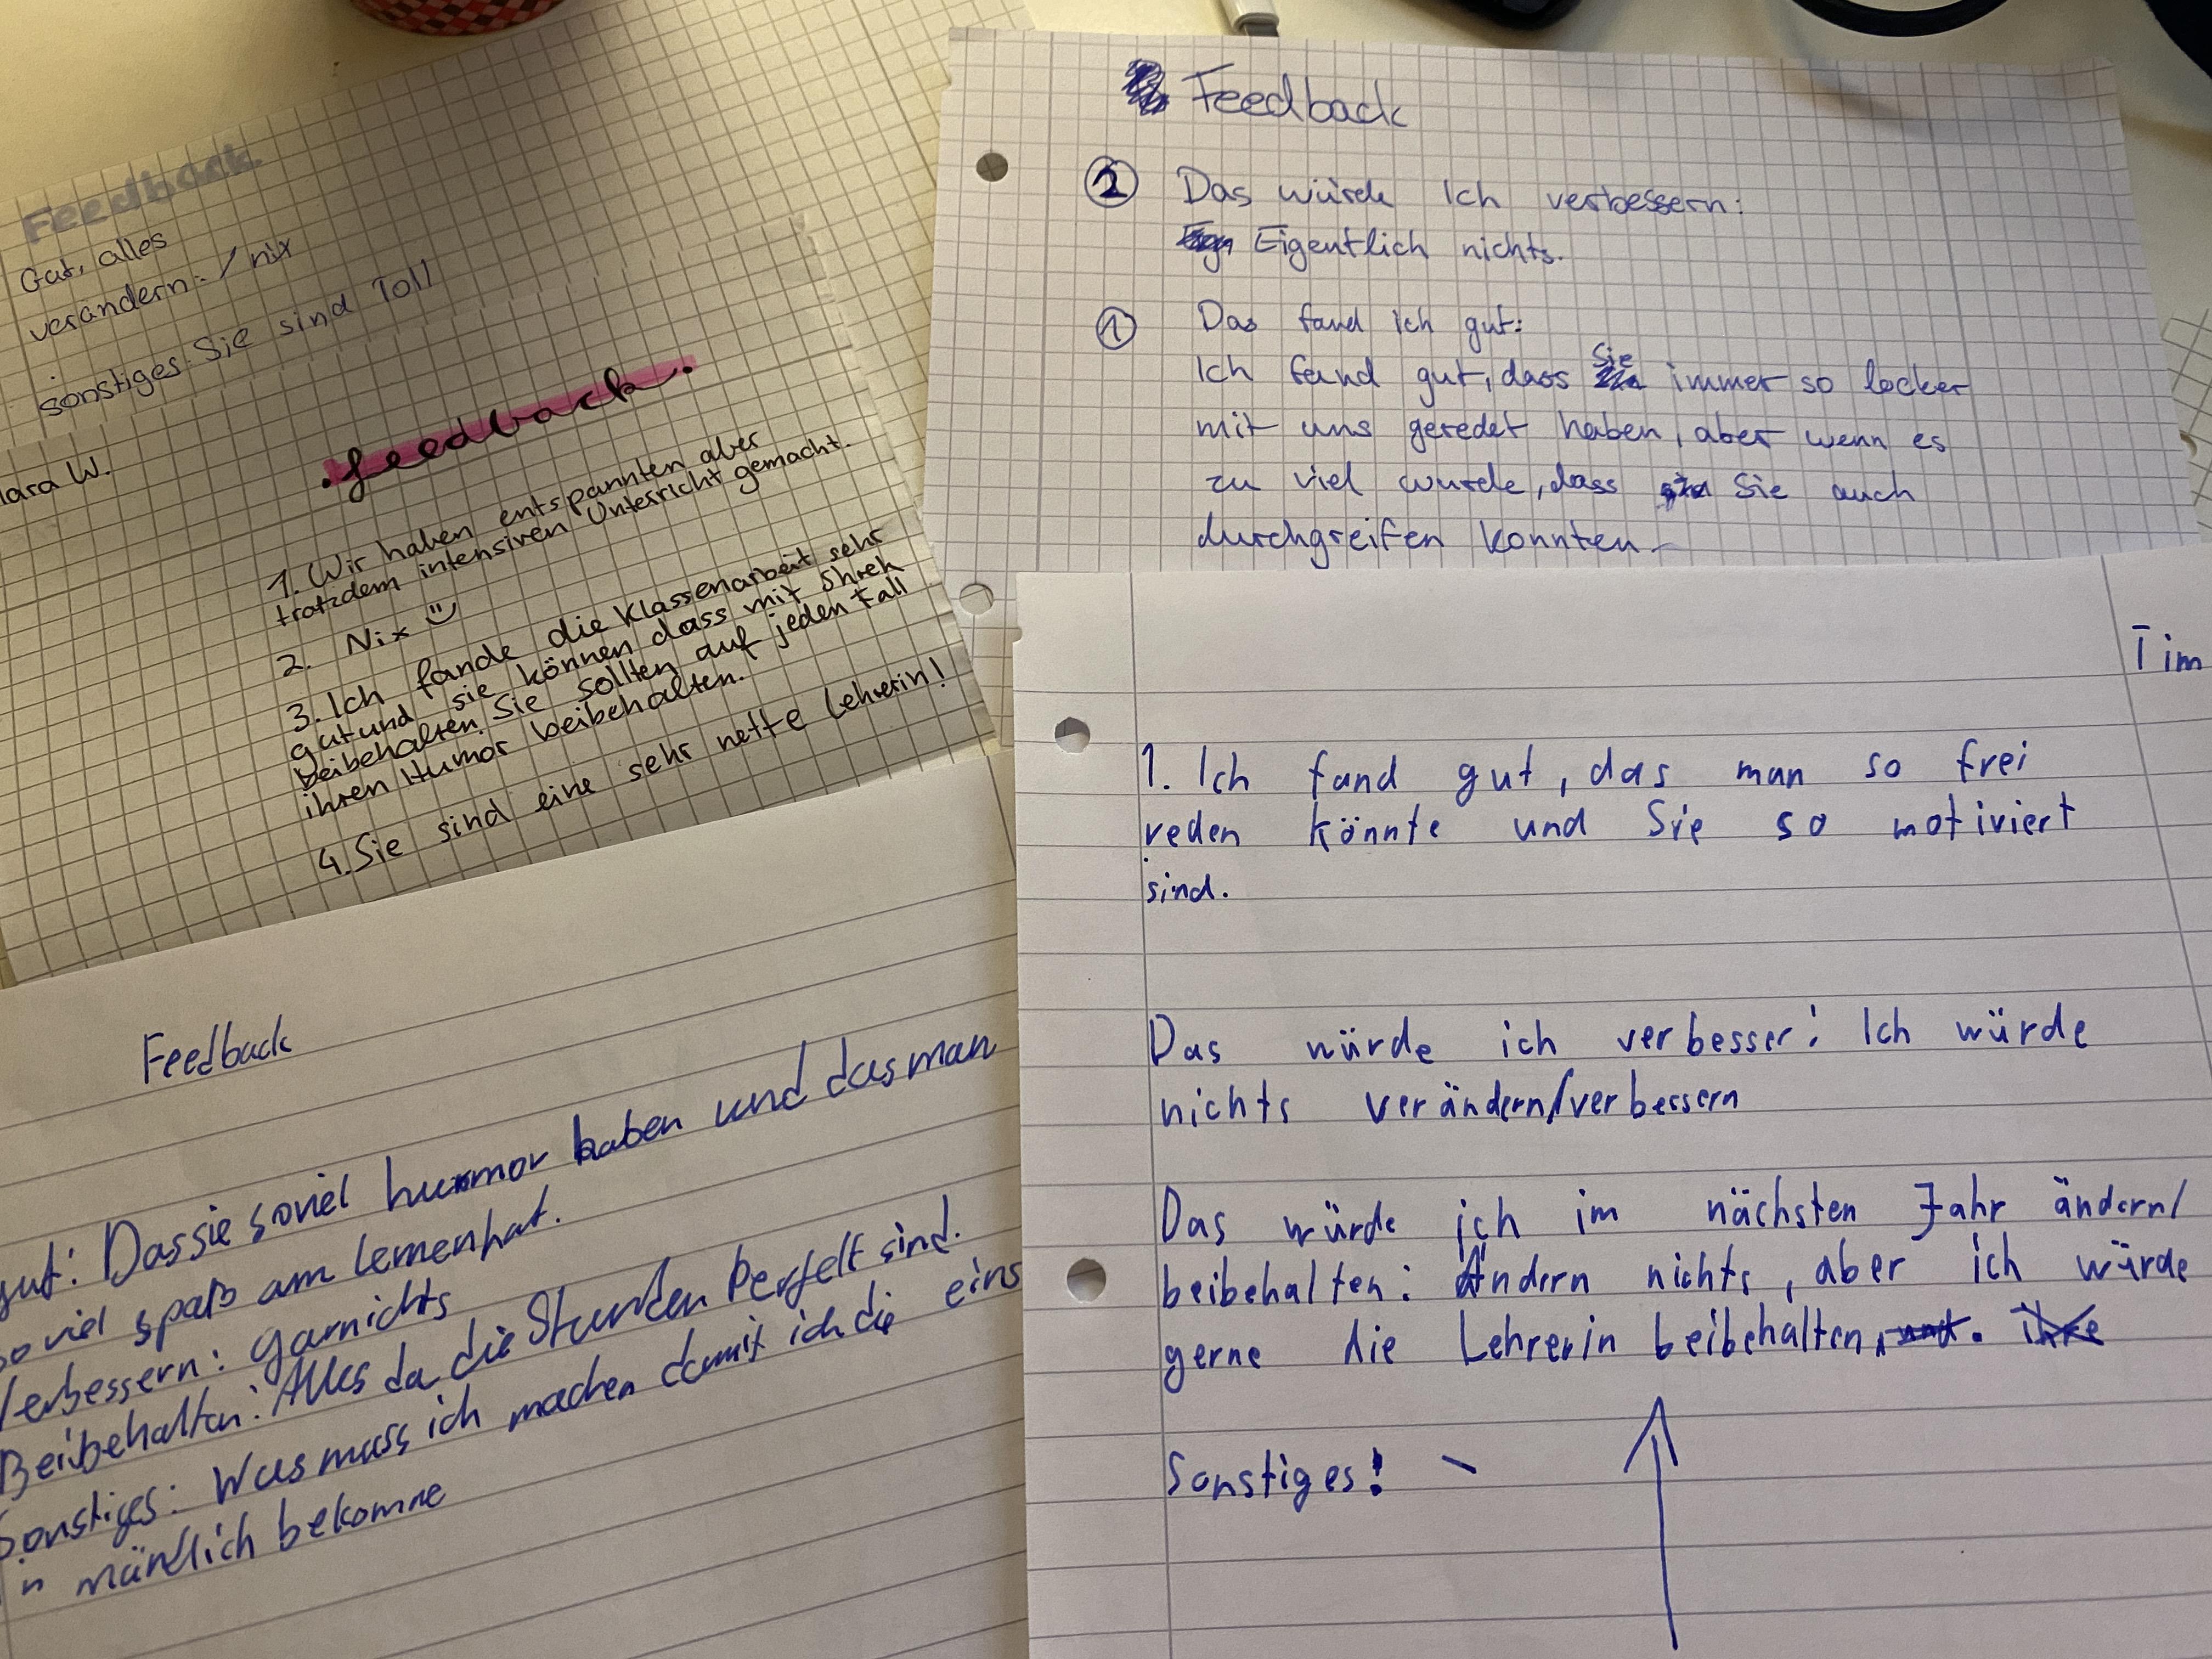 Feedback
Gut, alles
verändern: / nix
sonstiges: Sie sind Toll
lara W.
.feedback.
1. Wir haben entspannten aber
trotzdem intensiven Unterricht gemacht.
2. Nix
3. Ich fande die Klassenarbeit sehr
gut und sie können dass mit Ihren
beibehalten. Sie sollten auf jeden Fall
ihren Humor beibehalten.
4. Sie sind eine sehr nette Lehrerin!
Feedback
2 Das würde Ich verbessern:
Eigentlich nichts.
1 Das fand ich gut:
Ich fand gut, dass Sie immer so locker
mit uns geredet haben, aber wenn es
zu viel wurde, dass Sie auch
durchgreifen konnten.
Feedback
gut: Das sie soviel humor haben und das man
so viel spaß am lernen hat.
Verbessern: garnichts
Beibehalten: Alles da die Stunden Perfekt sind.
Sonstiges: Was muss ich machen damit ich die eins
n mündlich bekomme
Tim
1. Ich fand gut, das man so frei
reden könnte und Sie so motiviert
sind.
Das würde ich verbesser: Ich würde
nichts verändern/verbessern
Das würde ich im nächsten Jahr ändern/
beibehalten: Ändern nichts, aber ich würde
gerne die Lehrerin beibehalten, und. ihre
Sonstiges: -